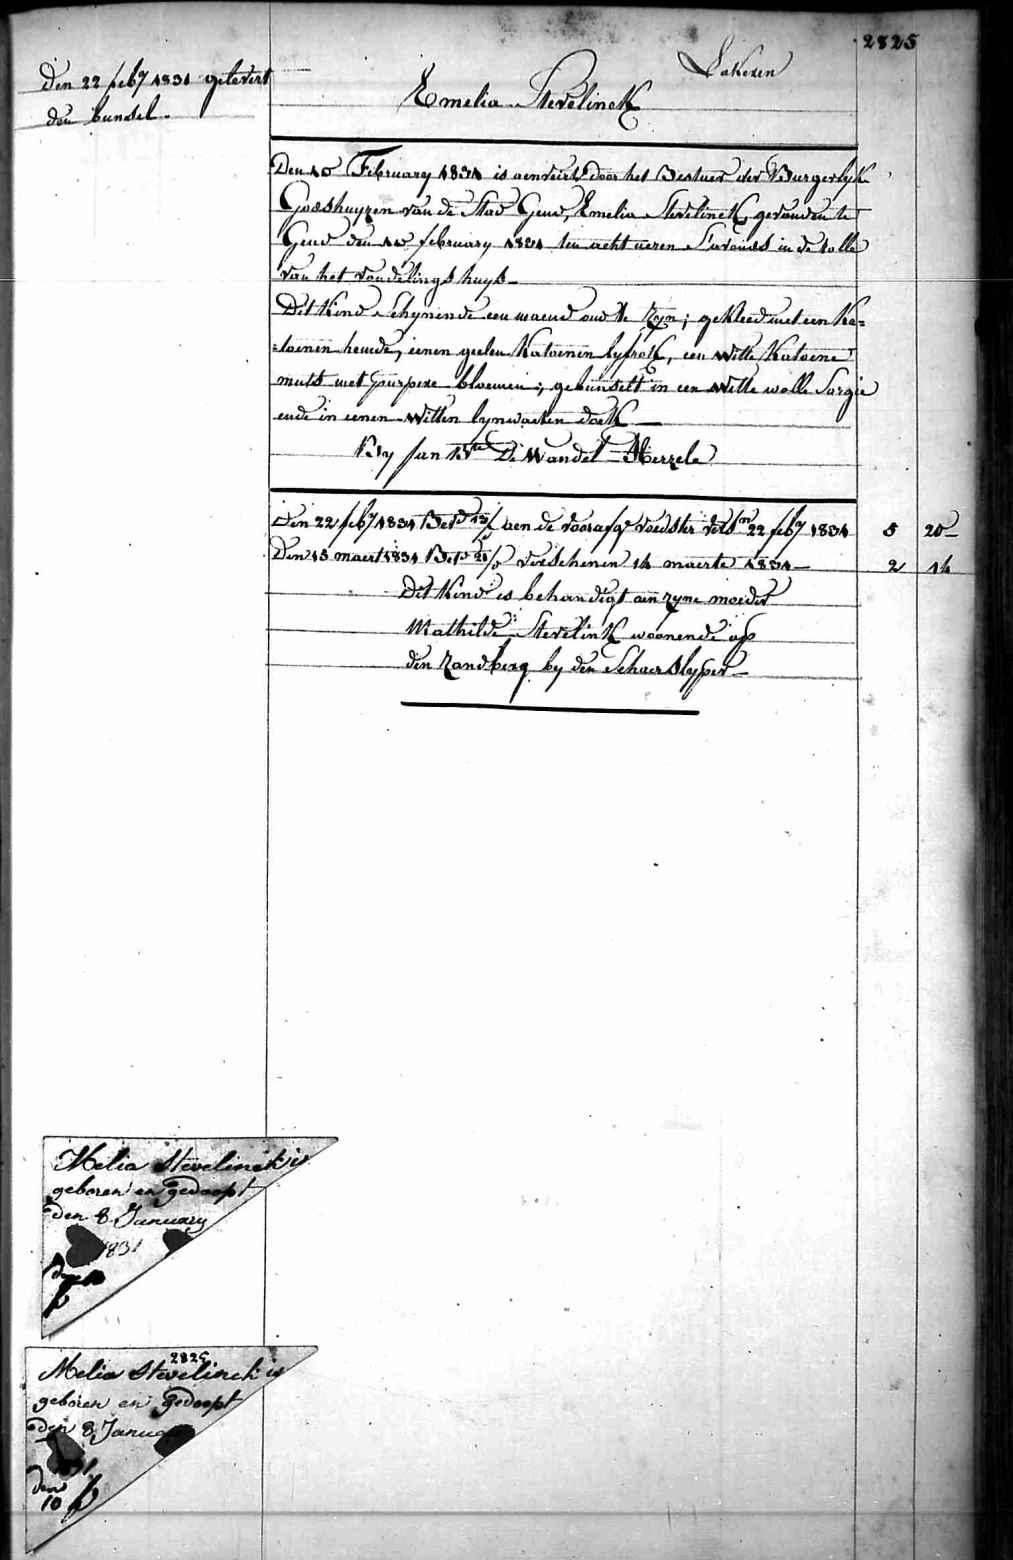 2825
Den 22 feby 1831 gelevert
den bundel.
Lakeren
Emelia Stevelinck
Den 10 February 1831 is aenveirt door het Bestuer der Burgerlyk
Godshuyzen van de Stad Gend, Emelia Stevelinck, gevonden te
Gend den 10 february 1831 ten acht ueren S'avonds in de rolle
van het vondelings huys
Dit Kind Schynende een maend oud te Zyn; gekleed met een Ka=
=toenen hemde, eenen geelen Katoenen lyfrok, een witte Katoene
muts met purpere bloemen; gebundelt in een witte wolle Sargie
ende in eenen witten lynwaeten doek
By Jan Bte De Wandel Herzele
Den 22 feby 1831 Betd 13/ aen de voorafge voedster vers 22 feby 1831 5 20
Den 15 maert 1831 Betd 21/ verschenen 14 maerte 1831 2 14
Dit Kind is behandigt aen zyne moeder
Mathilde Stevelink woonende op
den Zandberg by den Schaerslyper
Melia Stevelinck is
geboren en gedoopt
den 8 January
1831
den 10
f
2825
Melia Stevelinck is
geboren en gedoopt
den 8 January
1831
den
10 f